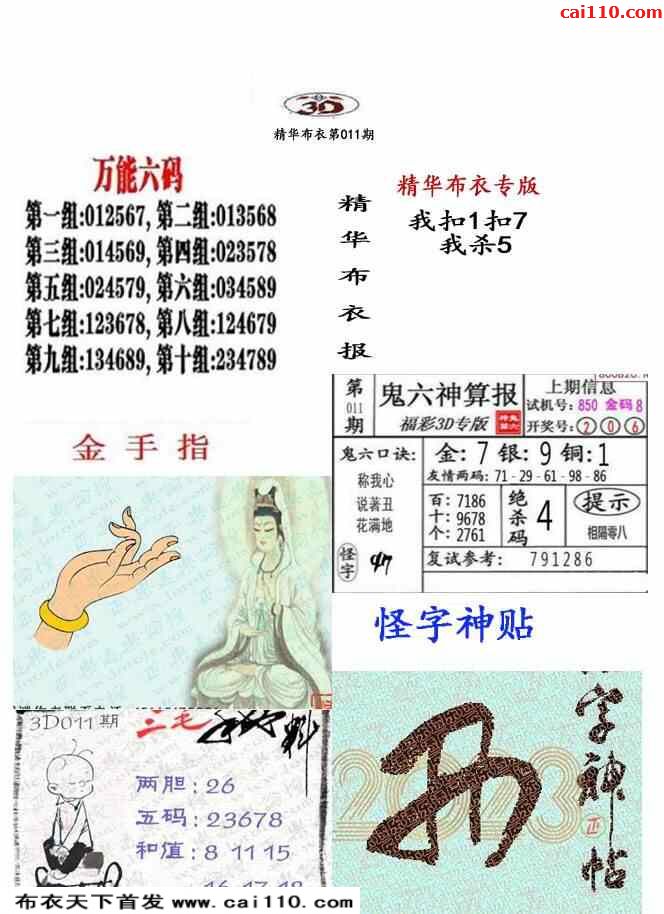 cai110.com
3D
精华布衣第011期
万能六码
第一组:012567, 第二组:013568
第三组:014569, 第四组:023578
第五组:024579, 第六组:034589
第七组:123678, 第八组:124679
第九组:134689, 第十组:234789
精华布衣报
精华布衣专版
我扣1扣7
我杀5
金手指
第011期
鬼六神算报
福彩3D专版
上期信息
试机号: 850 金码 8
开奖号: 2 0 6
鬼六口诀:
称我心
说著丑
花满地
金: 7 银: 9 铜: 1
友情两码: 71-29-61-98-86
百: 7186
十: 9678
个: 2761
绝杀码 4
提示
相隔零八
怪字
复试参考: 791286
怪字神贴
3D011期
两胆: 26
五码: 23678
和值: 8 11 15
16 17 18
字神帖
正
2023
布衣天下首发 www.cai110.com